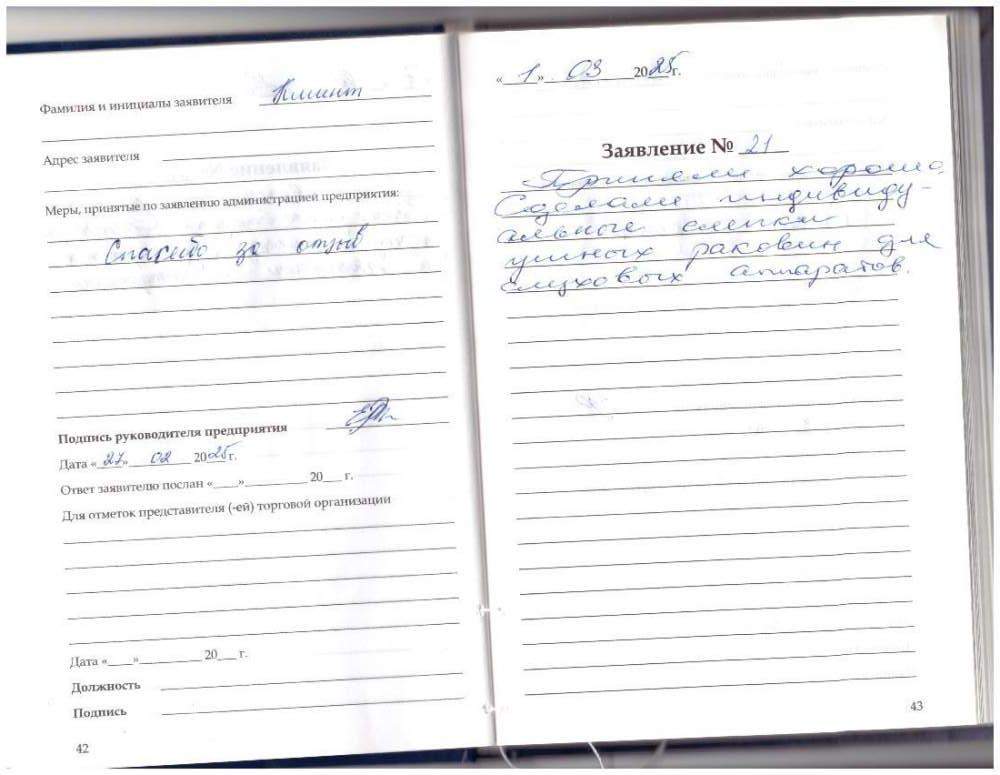 Фамилия и инициалы заявителя Клиент
Адрес заявителя
Меры, принятые по заявлению администрацией предприятия:
Спасибо за отзыв
Подпись руководителя предприятия
Дата «27» 02 2025г.
Ответ заявителю послан «____»__________ 20___ г.
Для отметок представителя (-ей) торговой организации
Дата «____»__________ 20___ г.
Должность
Подпись
42
«1» 03 2025г.
Заявление № 21
Приняли хорошо
Сделали индивиду-
альные слепки
ушных раковин для
слуховых аппаратов.
43